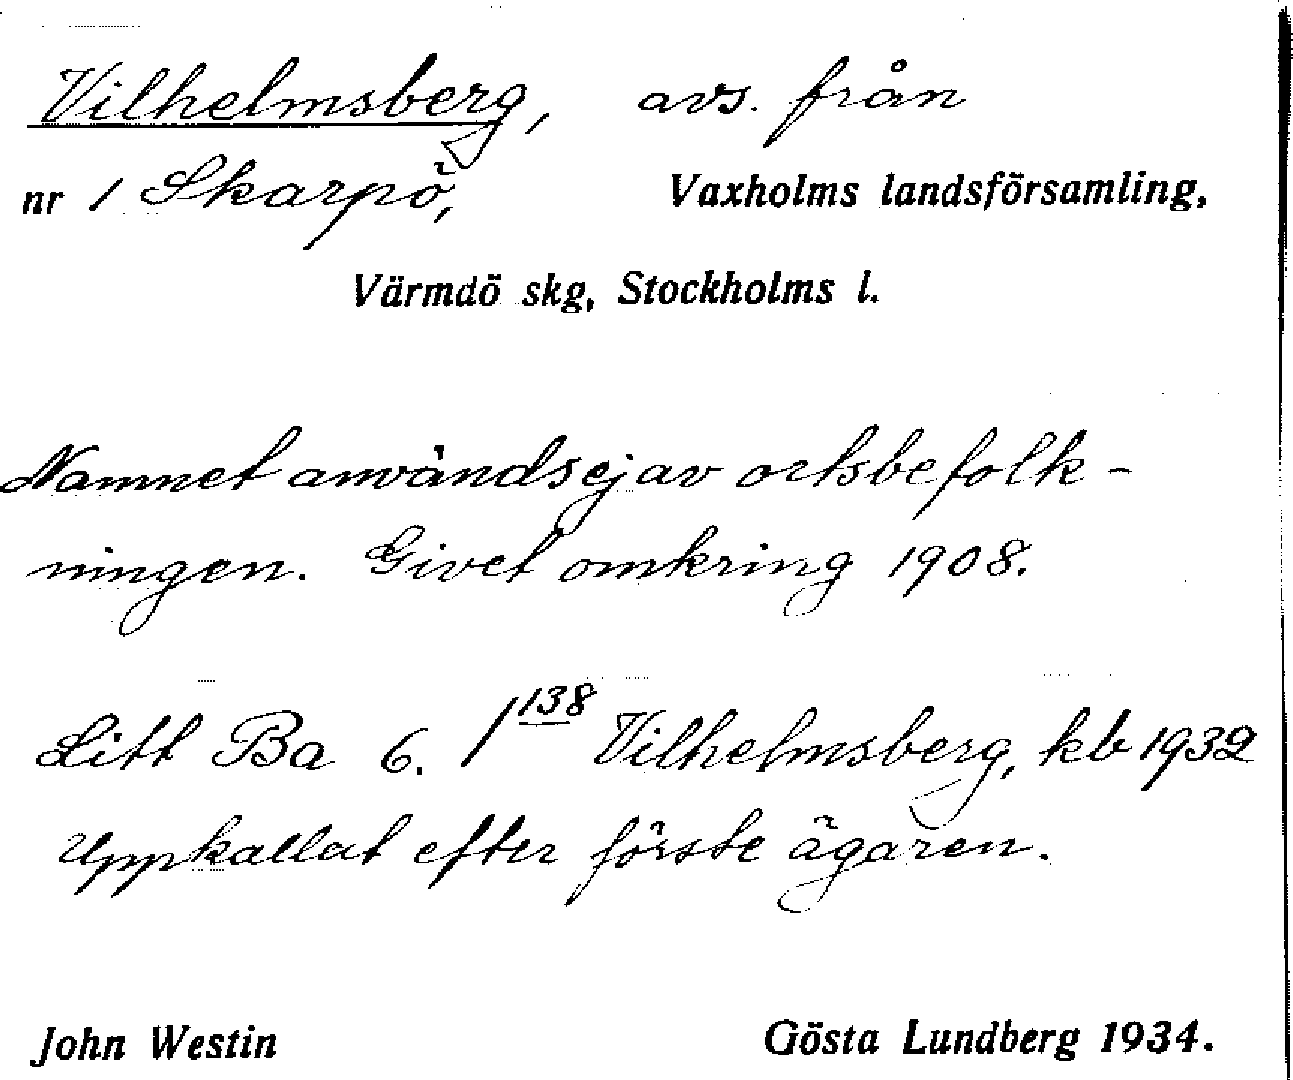 Vilhelmsberg, avs. från
nr 1 Skarpö, Vaxholms landsförsamling,
Värmdö skg, Stockholms l.
Namnet användsejav ortsbefolk-
ningen. Givet omkring 1908.
Litt Ba 6. 1 138 Vilhelmsberg, kb 1932
Uppkallat efter förste ägaren.
John Westin Gösta Lundberg 1934.